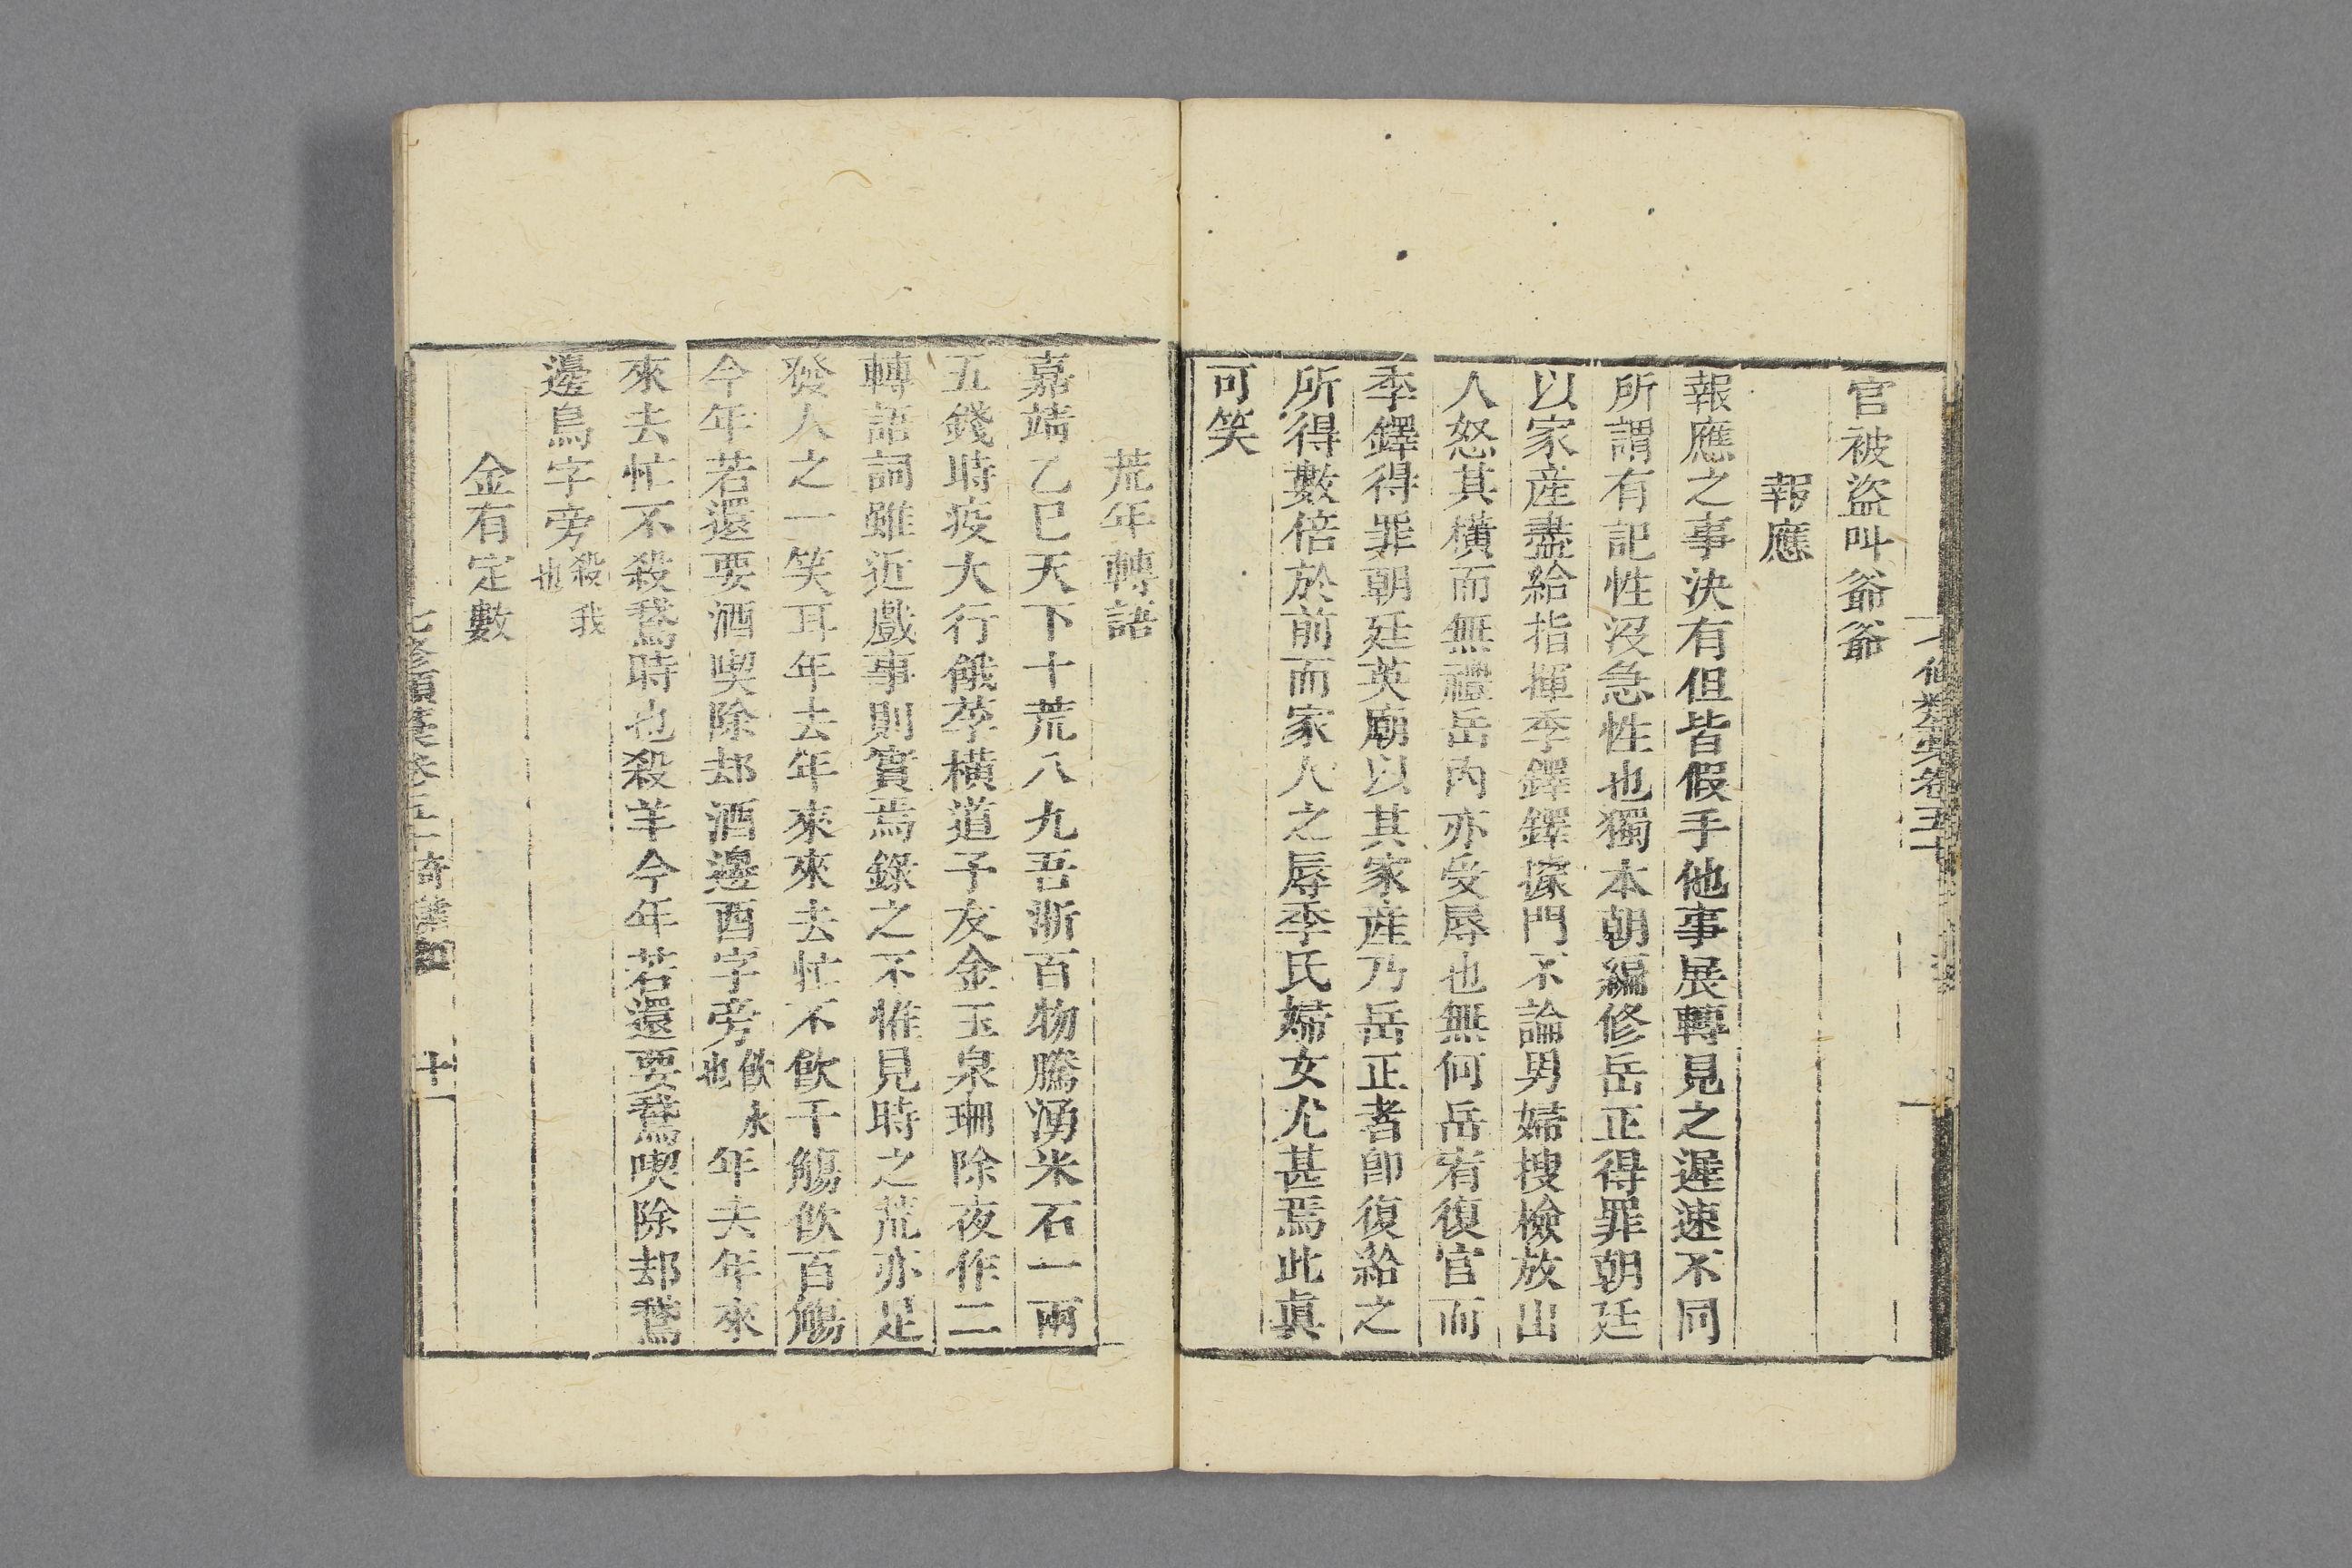 官被盜叫爺爺
報應
報應之事決有但皆假手他事展轉見之遲速不同
所謂有記性沒急性也獨本朝編修岳正得罪朝廷
以家産盡給指揮季鐸鐸據門不論男婦搜檢放出
人怒其橫而無禮岳內亦受辱也無何岳宥復官而
季鐸得罪朝廷英廟以其家産乃岳正者卽復給之
所得數倍於前而家人之辱季氏婦女尤甚焉此眞
可笑
荒年轉語
嘉靖乙巳天下十荒八九吾浙百物騰湧米石一兩
五錢時疫大行餓莩橫道予友金玉泉珊除夜作二
轉語詞雖近戲事則實焉錄之不惟見時之荒亦足
發人之一笑耳年去年來來去忙不飮千觴飮百觴
今年若還要酒喫除却酒邊酉字旁飮水也年去年來
來去忙不殺鵞時也殺羊今年若還要鵞喫除却鵞
邊鳥字旁殺我也
金有定數
七修類稾卷五十奇謔類
十